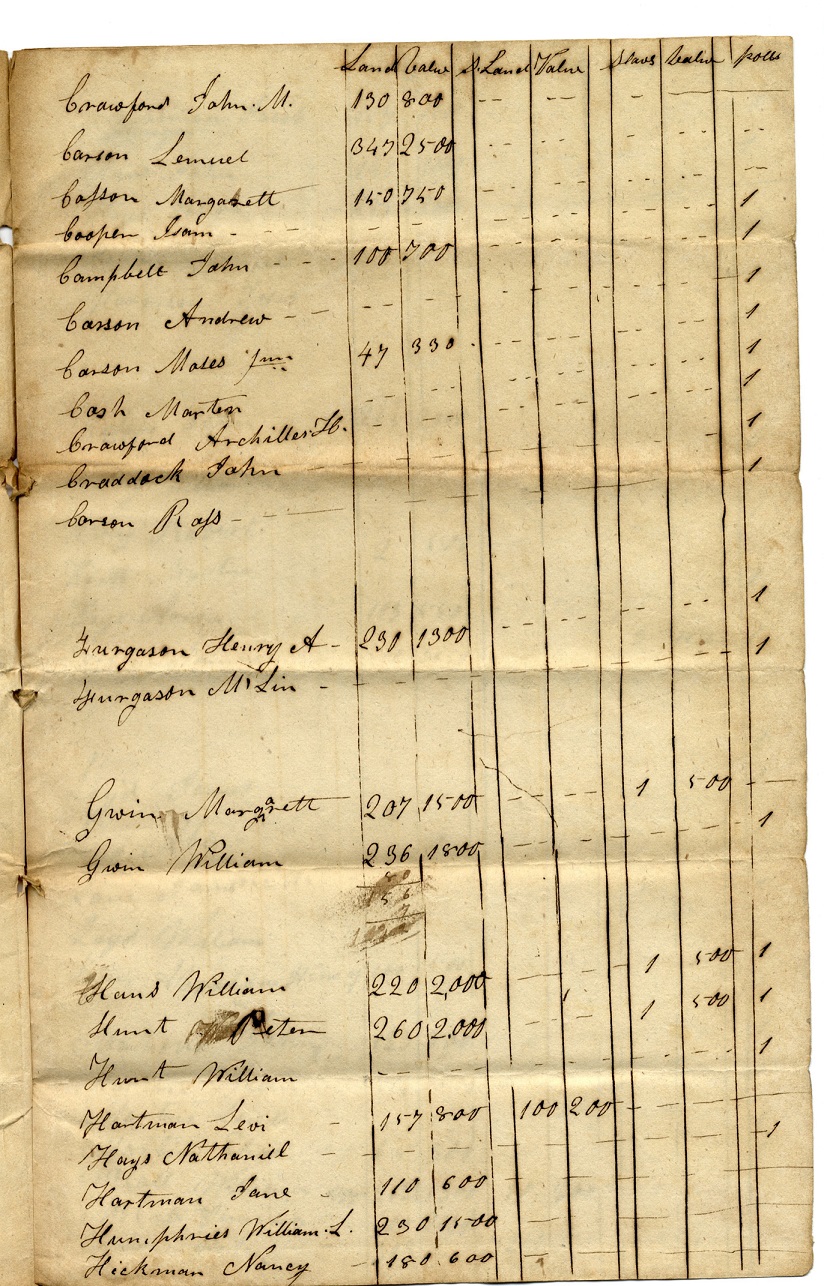 Land Value S. Land Value Slavs Value polls
Crawford John. M. 130 800 -- --
Carson Lemuel 347 2500 -- -- -- -- --
Casson Margarett 150 750 -- -- -- -- --
Cooper Isam - -- -- -- -- -- -- 1
Campbell John - - - 100 700 -- -- -- -- 1
Carson Andrew - - -- -- -- -- -- -- 1
Carson Moses Jun 47 330 - -- -- -- 1
Cash Marten -- -- -- -- -- -- 1
Crawford Archilles. H. -- -- -- -- -- -- 1
Craddock John - 1
Carson Ross - 1
Furgason Henry A - 230 1300 -- -- -- -- 1
Furgason Mc Lin - -- -- -- -- -- -- 1
Gwin Margarett 207 1500 -- -- 1 500 -
Gwin William 236 1800 -- -- -- -- 1
Hans William 220 2,000 -- -- 1 500 1
Hunt Peter 260 2,000 -- 1 500 1
Hunt William -- -- -- -- -- -- 1
Hartman Levi - 157 800 100 200 - -- -
Hays Nathaniel - -- -- -- -- -- -- 1
Hartman Jane - 110 600 -- --
Humphries William. L. 230 1500 -- --
Hickman Nancy - 180 600 --